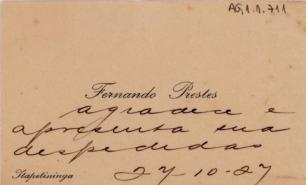 AG,1.1.711
Fernando Prestes
agradece e
apresenta sua
despedidas
Itapetininga 27-10-27